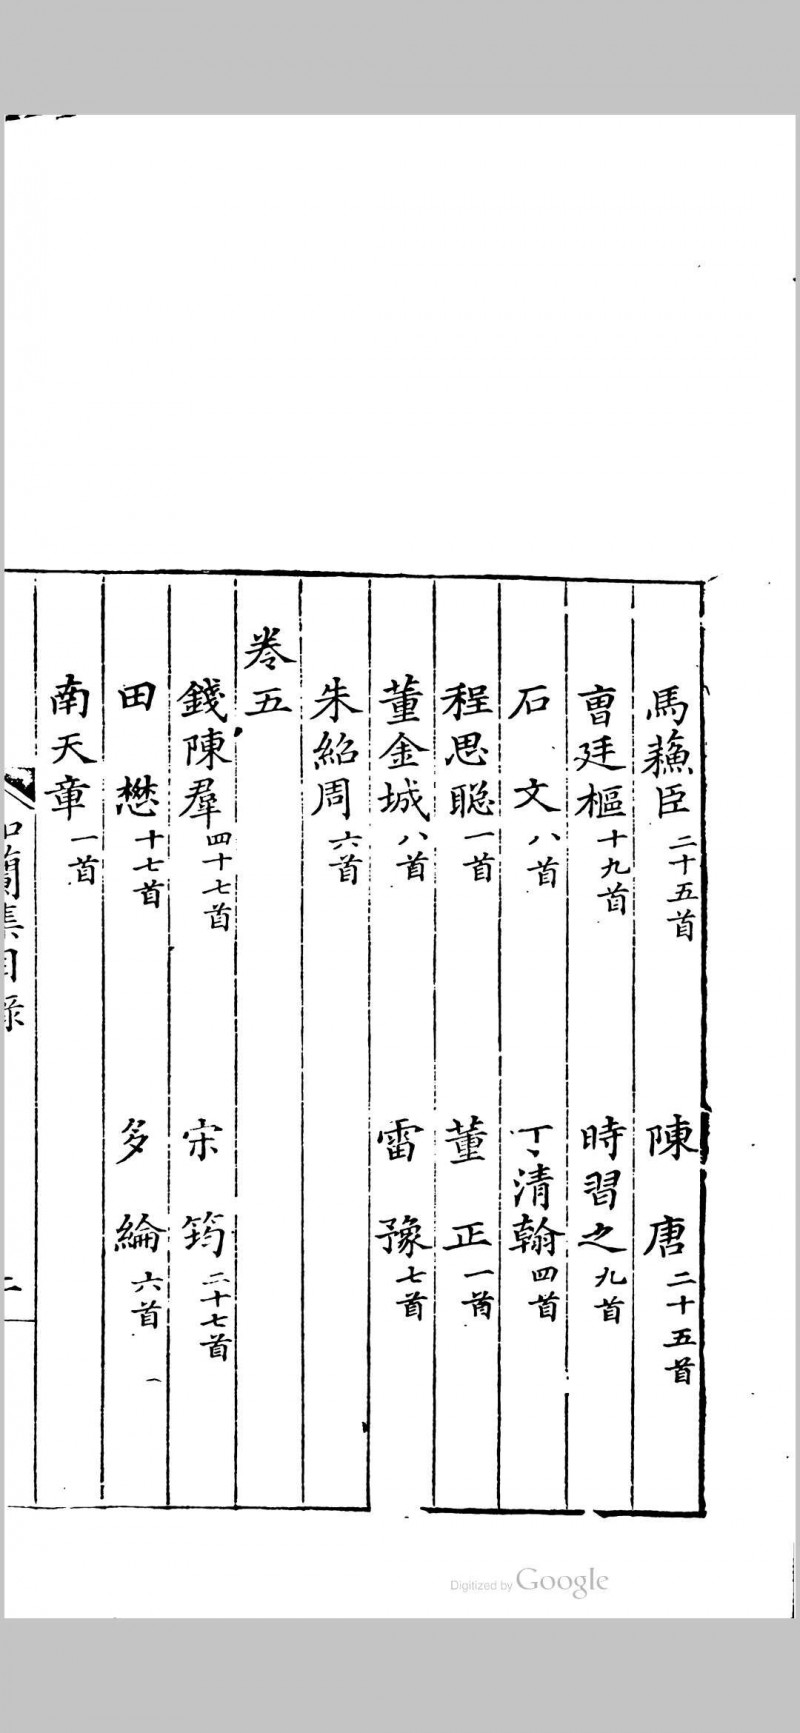 馬蘓臣二十五首　陳唐二十五首
曺廷樞十九首　時習之九首
石文八首　丁清翰四首
程思聰一首　董正一首
董金城八首　雷豫七首
朱紹周六首
卷五
錢陳羣四十七首　宋筠二十七首
田懋十七首　多綸六首
南天章一首
蘭集目錄
Digitized by Google